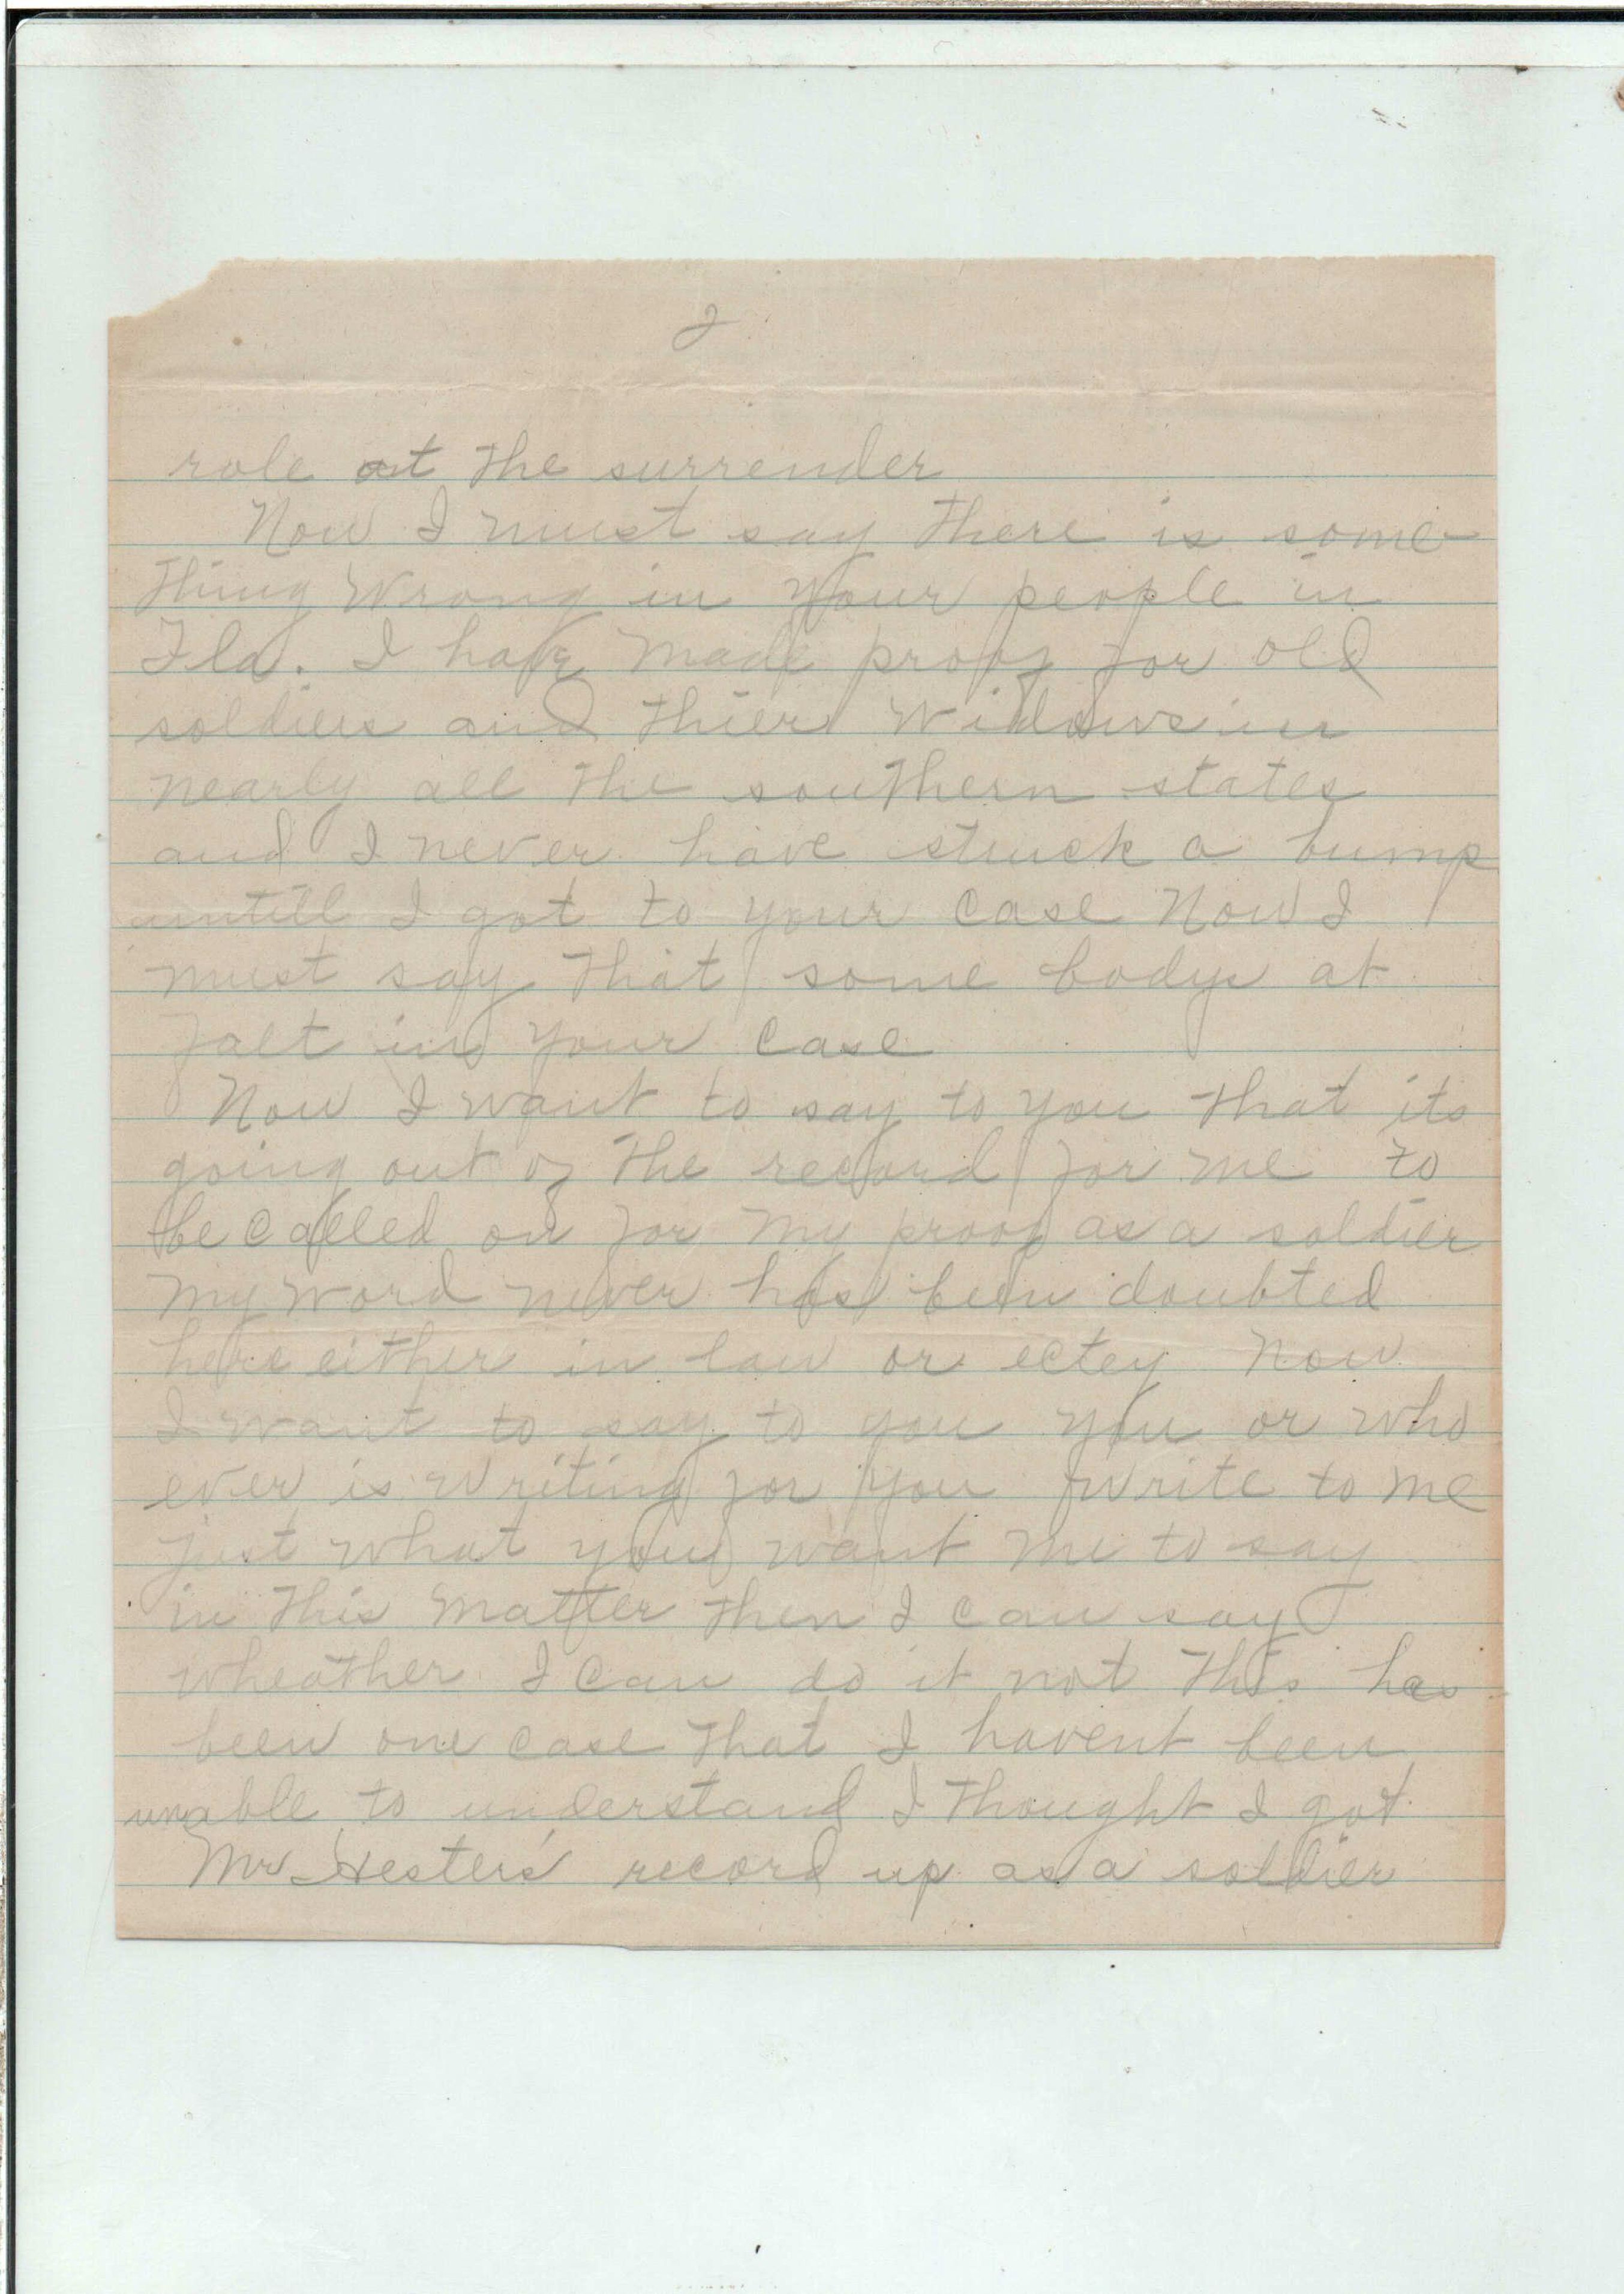 2
role at the surrender
Now I must say there is some
thing wrong in your people in
Fla. I have made proof for old
soldiers and thier widows in
nearly all the southern states
and I never have struck a bump
untill I got to your case Now I
must say that some bodys at
falt in your case
Now I want to say to you that its
going out of the record for me to
be called on for my proof as a soldier
my word never has been doubted
here either in law or ectey Now
I want to say to you you or who
ever is writing for you write to me
just what you want me to say
in this matter then I can say
wheather I can do it not this has
been one case that I havent been
unable to understand I thought I got
Mr Hesters record up as a soldier